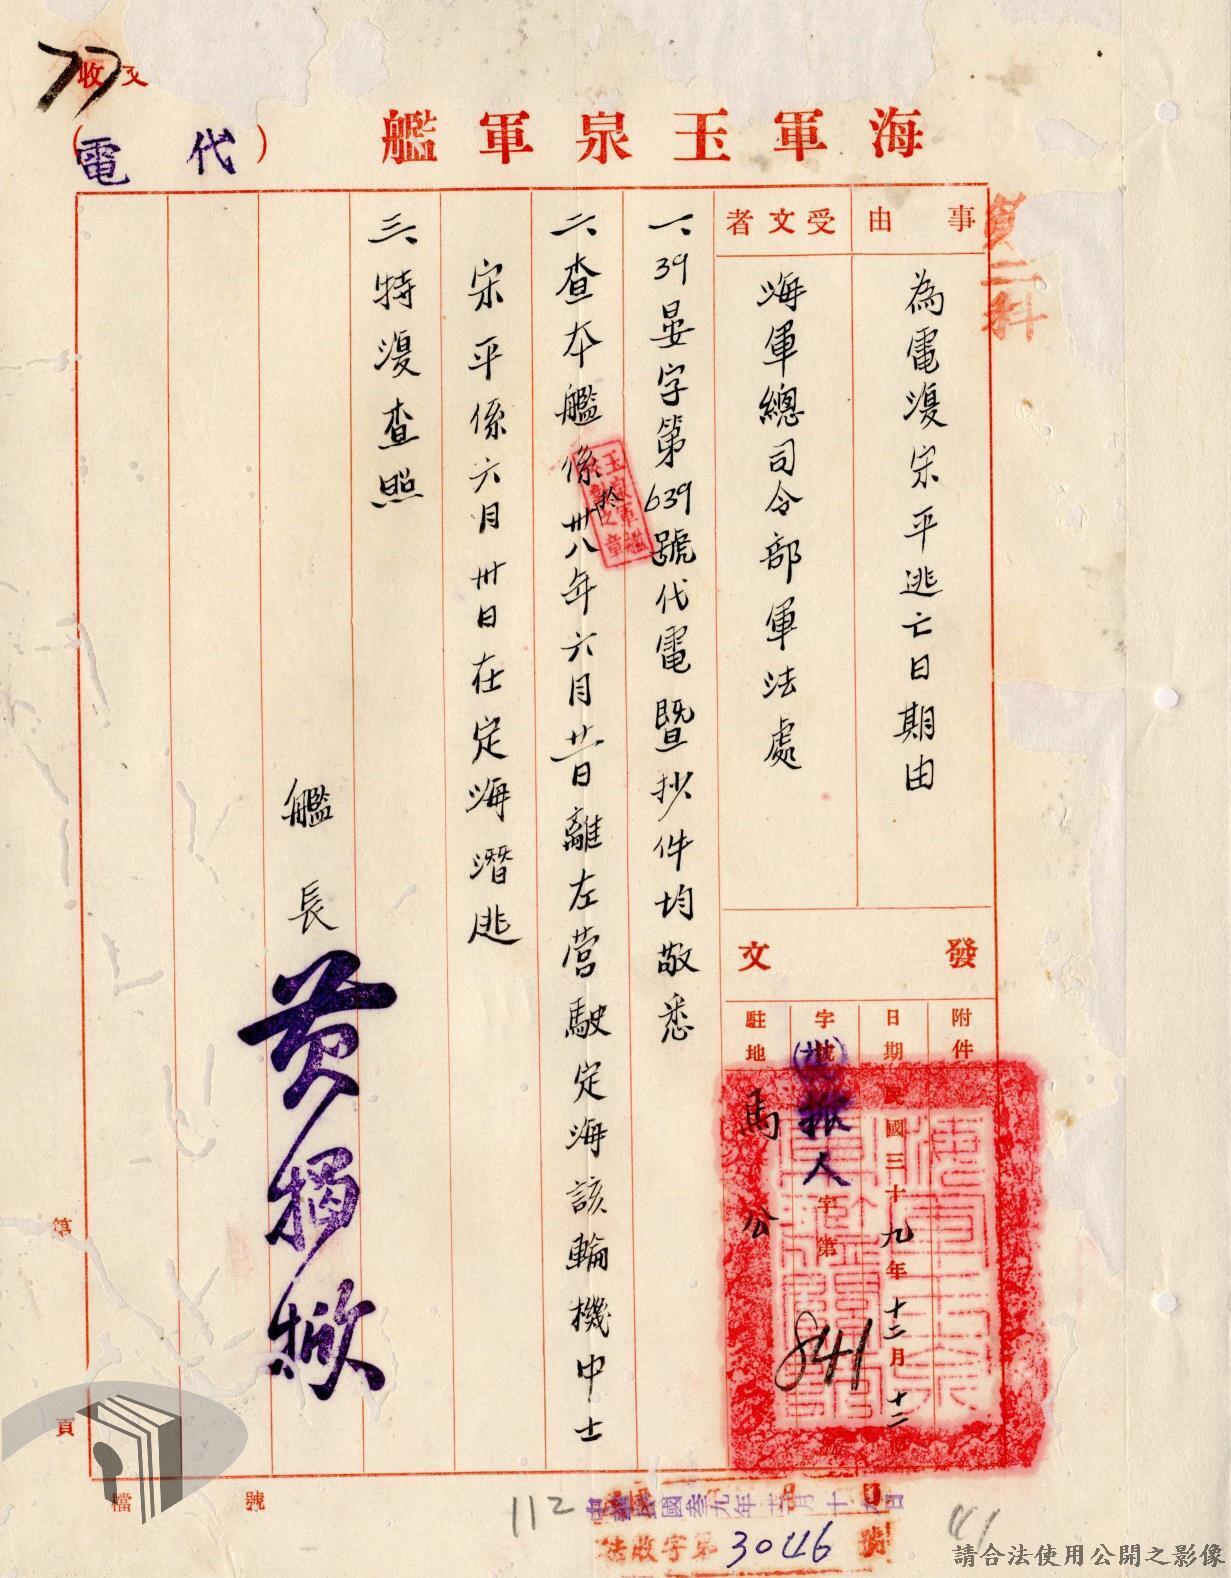 收文
77
海軍玉泉軍艦
(代電)
第二科
事由
為電復宋平逃亡日期由
受文者
海軍總司令部軍法處
發文
附件
日期
民國三十九年十二月十二
字號
振人字第841
駐地
馬公
一、39晏字第639號代電暨抄件均敬悉
二、查本艦係於卅八年六月廿日離左營駛定海該輪機中士
宋平係六月卅日在定海潛逃
三、特復查照
艦長黃揭掀
玉泉軍艦
之章
第
頁
檔
號
112
中華民國叁九年十二月十六日
法收字第3046號
41
請合法使用公開之影像